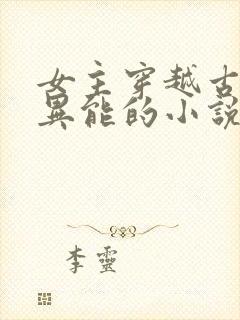 女主穿越古
異能的小說
李靈